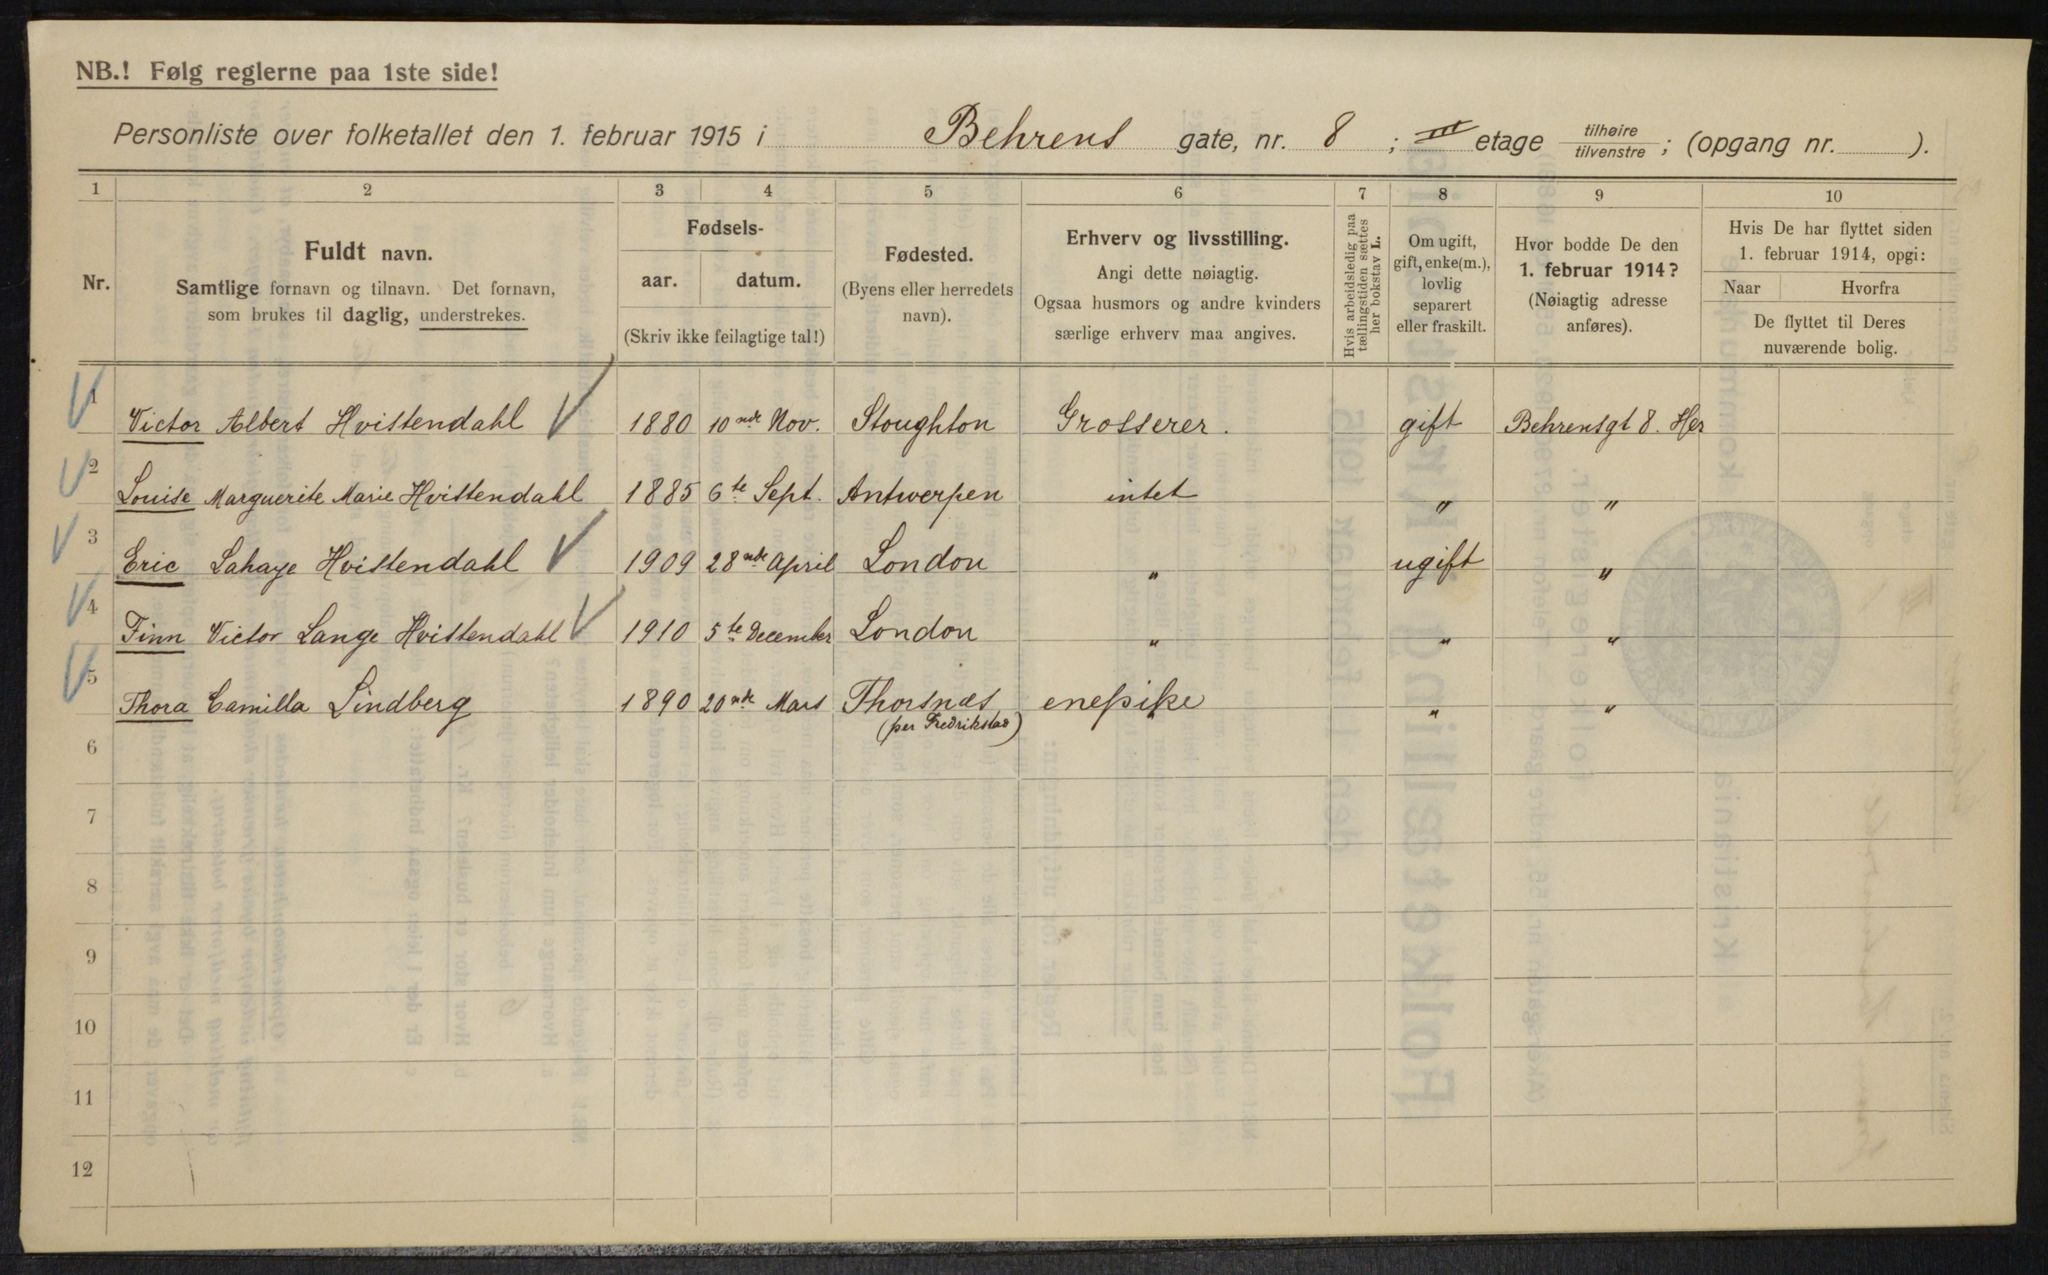 NB.! Følg reglerne paa 1ste side!
Personliste over folketallet den 1. februar 1915 i Behrens gate, nr. 8 ; III etage tilhøire/tilvenstre ; (opgang nr. ).
1 2 3 4 5 6 7 8 9 10
Nr.
Fuldt navn.
Samtlige fornavn og tilnavn. Det fornavn,
som brukes til daglig, understrekes.
Fødsels-
aar. datum.
(Skriv ikke feilagtige tal!)
Fødested.
(Byens eller herredets
navn).
Erhverv og livsstilling.
Angi dette nøiagtig.
Ogsaa husmors og andre kvinders
særlige erhverv maa angives.
Hvis arbeidsledig paa
tællingstiden sættes
her bokstav L.
Om ugift,
gift, enke(m.),
lovlig
separert
eller fraskilt.
Hvor bodde De den
1. februar 1914?
(Nøiagtig adresse
anføres).
Hvis De har flyttet siden
1. februar 1914, opgi:
Naar Hvorfra
De flyttet til Deres
nuværende bolig.
1 Victor Albert Hvistendahl 1880 10nde Nov. Stoughton Grosserer. gift Behrensgt 8. Her
2 Louise Marguerite Marie Hvistendahl 1885 6te Sept. Antwerpen intet " "
3 Eric Lahaye Hvistendahl 1909 28nde April London " ugift "
4 Finn Victor Lange Hvistendahl 1910 5te December London " " "
5 Thora Camilla Lindberg 1890 20nde Mars Thorsnæs enepike " "
(per Fredrikstad)
6
7
8
9
10
11
12